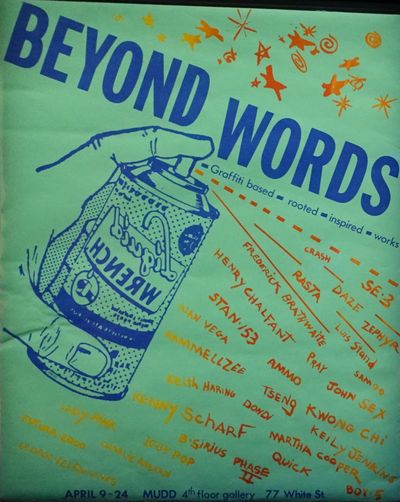 BEYOND
WORDS
Graffiti based - rooted - inspired - works
Liquid
WRENCH
CRASH
SE:3
RASTA
DAZE
ZEPHYR
FREDERICK BRATHWAITE
LUIS Stand
HENRY CHALFANT
PRAY
SAMOO
STAN 153
AMMO
JOHN SEX
ALAN VEGA
RAMMELLZEE
TSENG KWONG CHI
Keith HARING
DONDI
KEILY JENKINS
KENNY SCHARF
MARTHA COOPER
LADY PINK
IGGY POP
B-SIRIUS
PHASE II
QUICK
BOY 5
FUTURA 2000
CHARLIE AHEARN
APRIL 9-24 MUDD 4th floor gallery 77 White St.